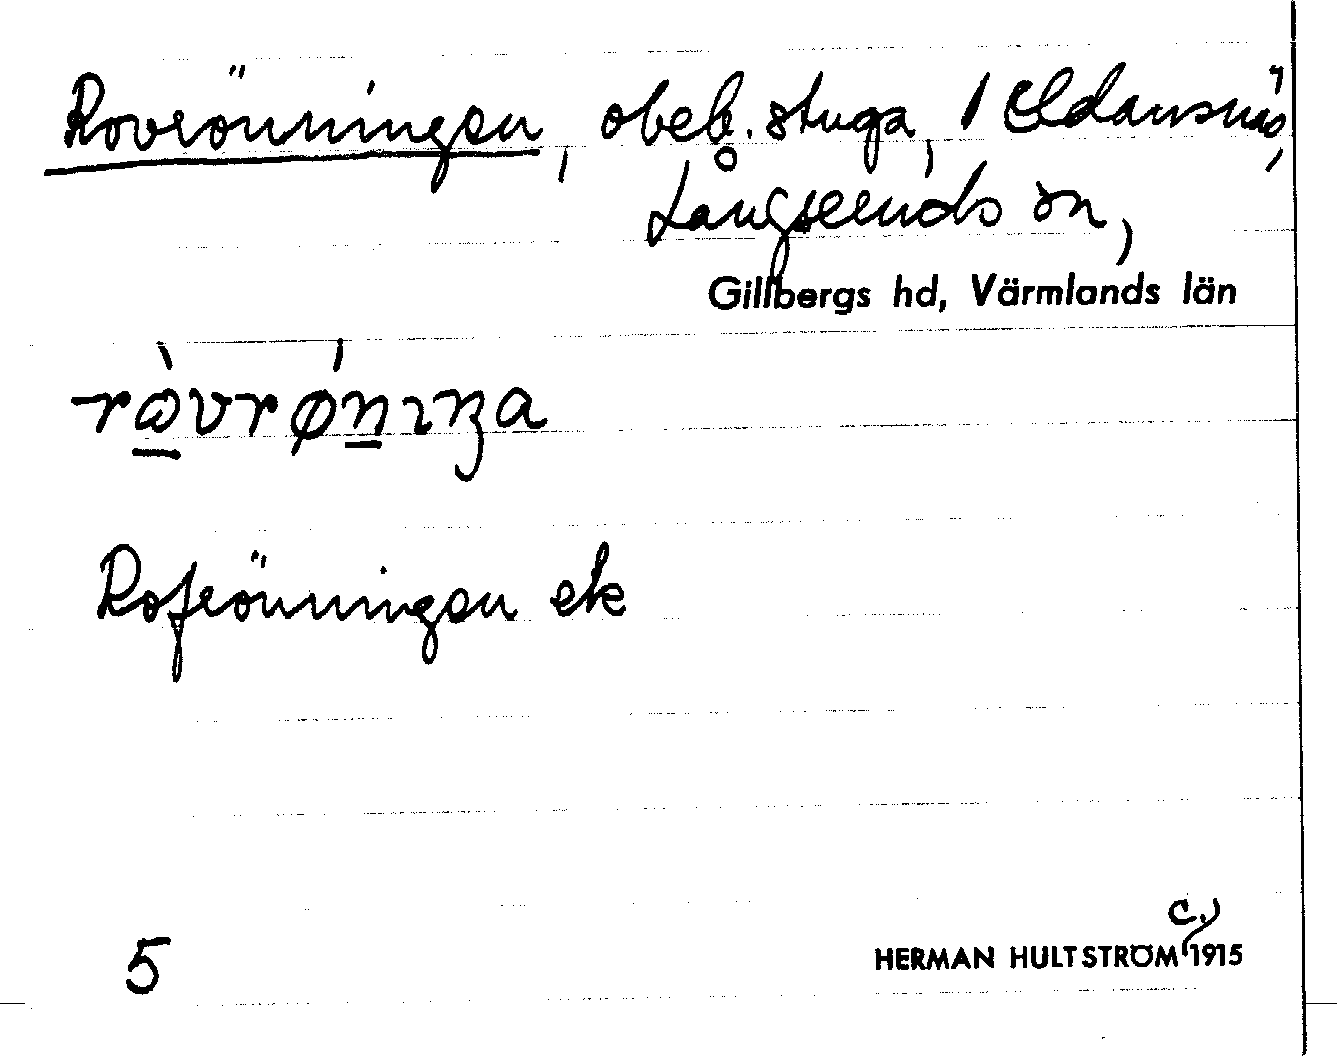 Rovrönningen, obeb. stuga, 1 Eldansnäs,
Långseruds sn,
Gillbergs hd, Värmlands län
Rofrönningen ek
5
HERMAN HULTSTRÖM c.) 1915